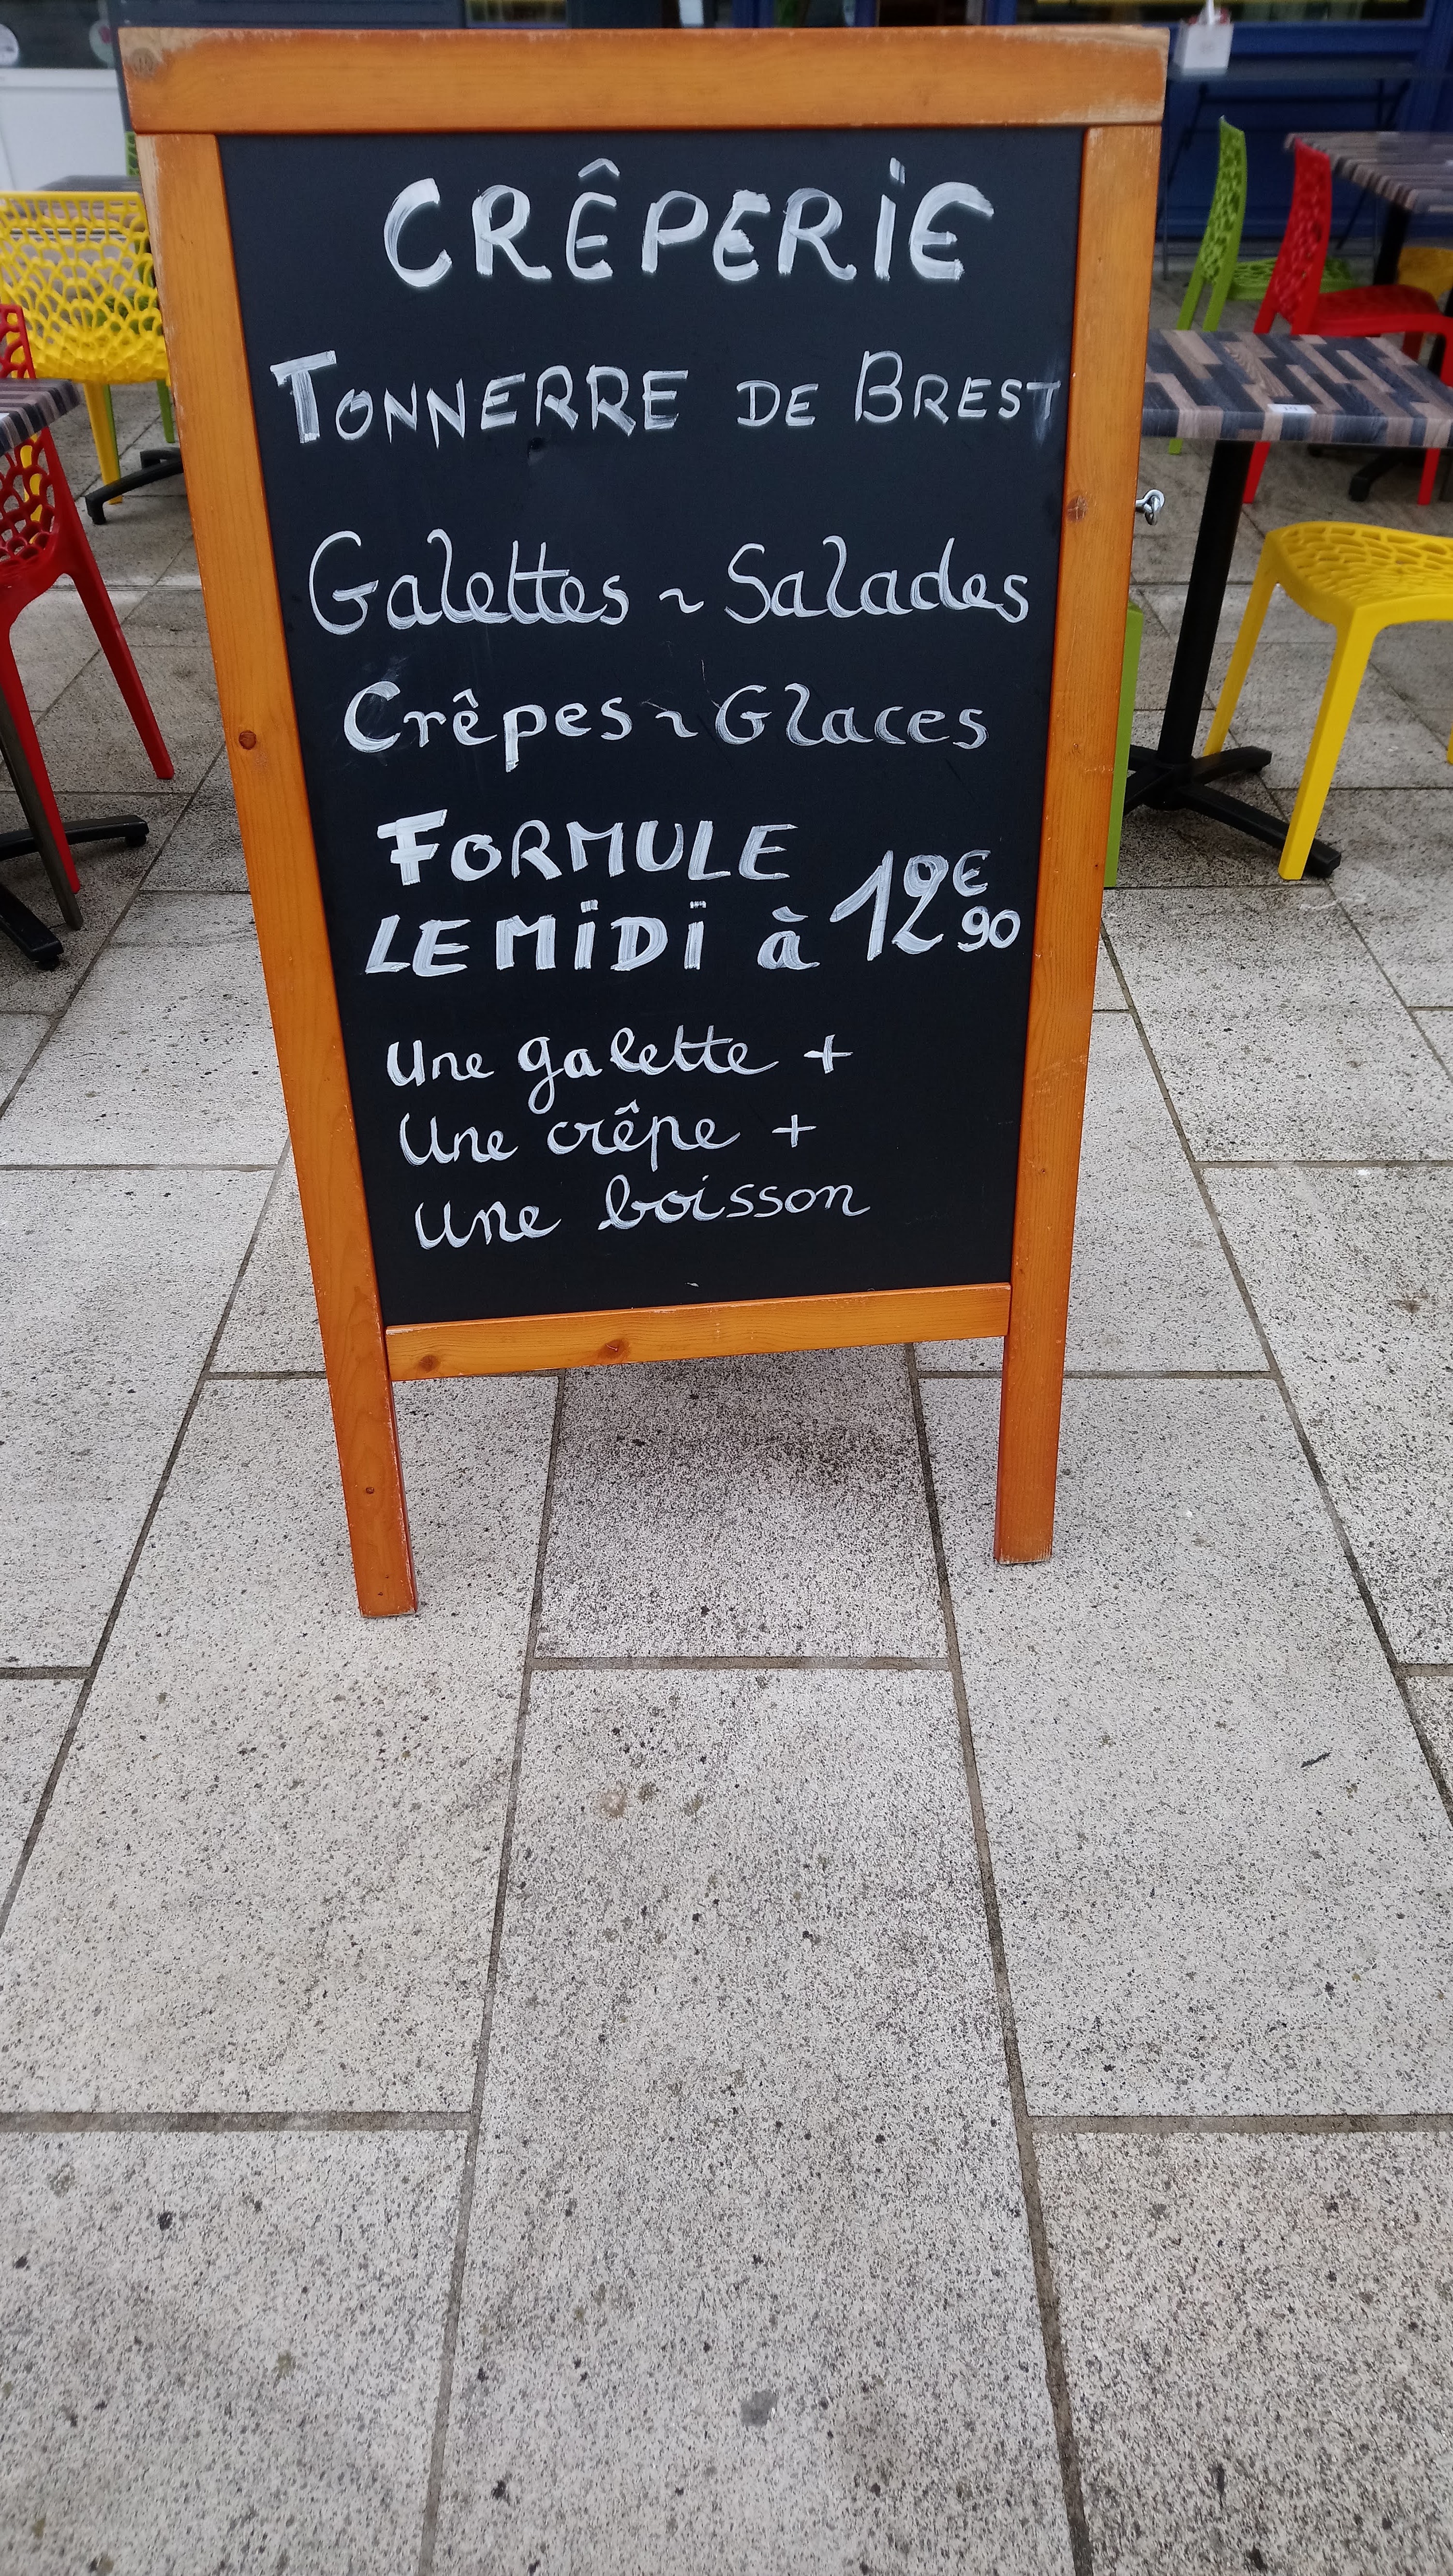 CRÊPERIE
TONNERRE DE BREST
Galettes ~ Salades
Crêpes ~ Glaces
FORMULE
LE MIDI à 12€90
Une galette +
Une crêpe +
Une boisson